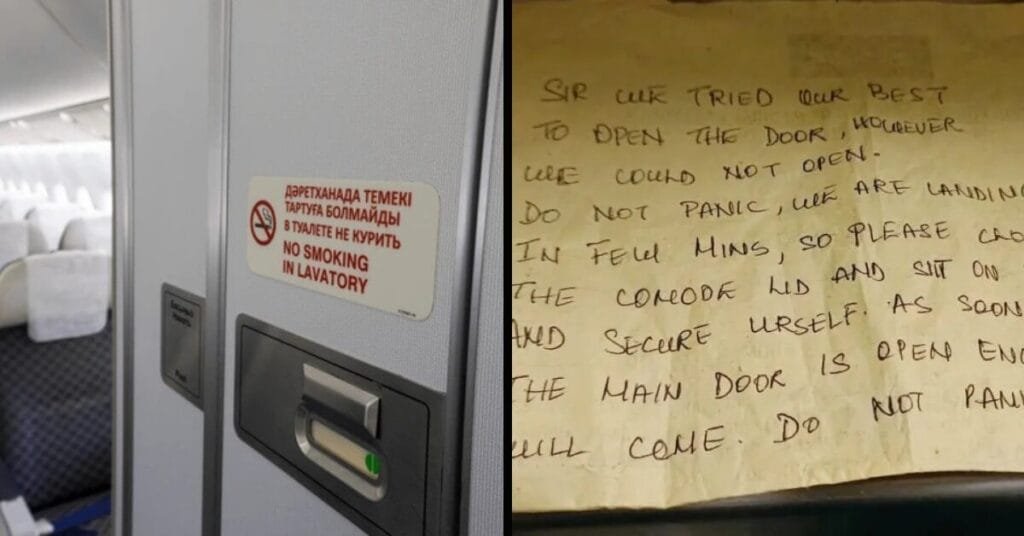 ДӘРЕТХАНАДА ТЕМЕКІ
ТАРТУҒА БОЛМАЙДЫ
В ТУАЛЕТЕ НЕ КУРИТЬ
NO SMOKING
IN LAVATORY
SIR WE TRIED OUR BEST
TO OPEN THE DOOR, HOWEVER
WE COULD NOT OPEN.
DO NOT PANIC, WE ARE LANDING
IN FEW MINS, SO PLEASE CLO
THE COMODE LID AND SIT ON
AND SECURE URSELF. AS SOON
THE MAIN DOOR IS OPEN ENG
WILL COME. DO NOT PANI